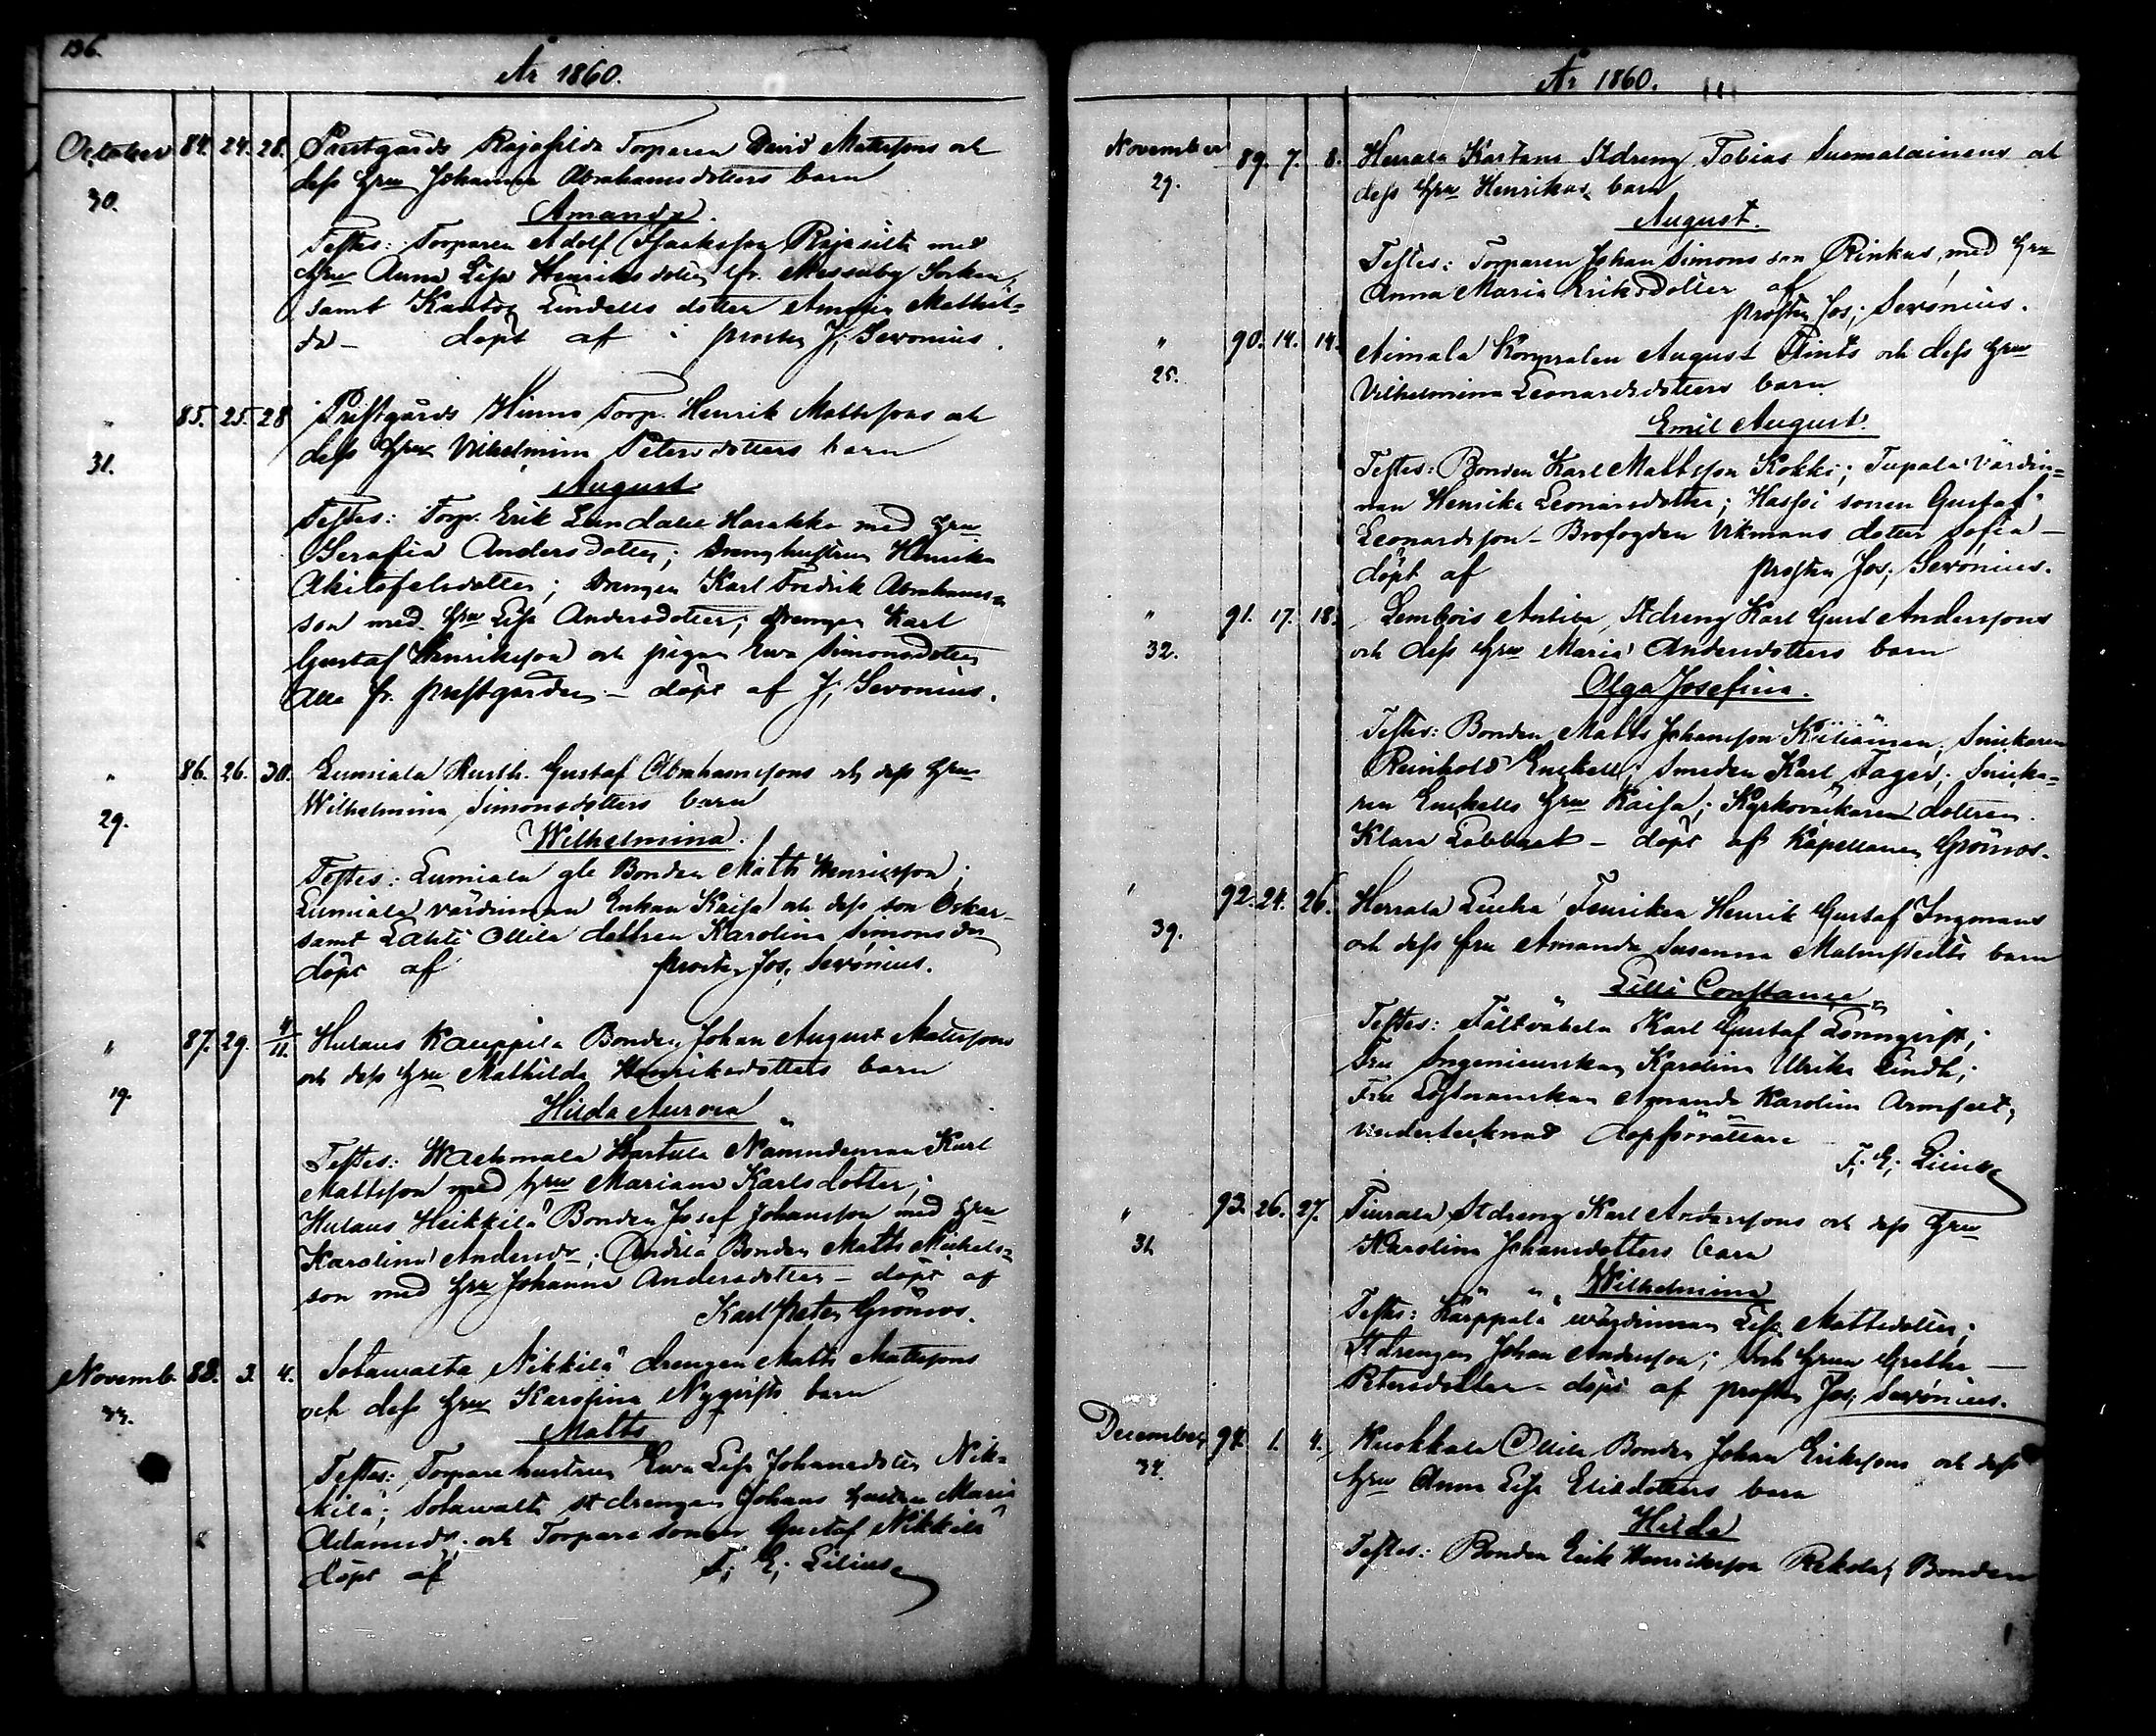 136.
År 1860.
October 84. 24. 28. Prestgårds Rajasilda Torparen David Mattssons och
30. dess Hru Johanna Abrahamsdotters barn
Amanda.
Testes: Torparen Adolf Isaaksson Rajasilta med
Hru Anna Lisa Henriksdotter fr. Messuby Socken,
samt Kantor Lindells dotter Amanda Mathil-
da - döpt af prosten J; Seronius.
" 85. 25. 28 Prestgårds Hinno Torp. Henrik Mattssons och
31. dess Hru Vilhelmina Petersdotters barn
August
Testes: Torp. Erik Lundahl Harakka med Hru
Serafia Andersdotter; Drenghustrun Henrika
Akitofelsdotter; Drengen Karl Fredrik Abrahams-
son med Hru Lisa Andersdotter; drengen Karl
Gustaf Henriksson och pigan Ewa Simonsdotter
alla fr. prestgården - döpt af J; Seronius.
" 86. 26. 30. Lumiala Rusth. Gustaf Abrahamssons och dess Hru
Wilhelmina Simonsdotters barn
29. Wilhelmina.
Testes: Lumiala gle Bonden Matts Henriksson;
Lumiala värdinnan Enkan Kaisa och dess son Oskar
samt Lahti Ollila dottren Karolina Simonsdr
döpt af prosten Jos; Seronius.
" 87. 29. 4/11. Hulaus Kauppila Bonden Johan August Mattssons
och dess Hru Mathilda Henriksdotters barn
19. Hilda Aurora
Testes: Wachmala Hartula Nämndeman Karl
Mattsson med hru Mariana Karlsdotter;
Hulaus Heikkilä Bonden Josef Johansson med Hru
Karolina Andersdr; Anttila Bonden Matts Mickels-
son med Hru Johanna Andersdotter - döpt af
Karl Peter Grönroos.
Novemb. 88. 3. 4. Sotawalta Nikkilä drengen Matts Mattssons
33. och dess Hru Karolina Nyqvists barn
Matts
Testes; Torpare hustrun Ewa Lisa Johansdotter Nik-
kilä; Sotawalta stdrengen Johans hustru Maria
Adamsdr. och Torpare sonen Gustaf Nikkilä
döpt af F; E; Lilius
År 1860.
November 89. 7. 8. Herrala Stdreng Tobias Suomalainens och
29. dess Hru Henrikas barn
August.
Testes: Torparen Johan Simonsson Rinkus, med Hru
Anna Maria Eriksdotter af
prosten Jos; Seronius.
" 90. 14. 14. Aimala Korpralen August Flinks och dess Hru
25. Vilhelmina Leonardsdotters barn
Emil August.
Testes: Bonden Karl Mattsson Kokki; Tupala värdin-
nan Henrika Leonardsdotter; Hassi sonen Gustaf
Leonardsson - Brofogden Vikmans dotter Sofia -
döpt af prosten Jos; Seronius.
" 91. 17. 18. Lembois Antila, Stdreng Karl Gust Anderssons
32. och dess Hru Maria Andersdotters barn
Olga Josefina.
Testes: Bonden Matts Johansson Kiiliäinen; Snickaren
Reinhold Enckell; Smeden Karl Fager; Snicka-
ren Enckells Hru Kaisa; Kyrkoväktaren dottren
Klara Labbart - döpt af Kapellanen Grönroos.
" 92. 24. 26. Herrala Fenriken Henrik Gustaf Ingmans
39. och dess fru Amanda Susanna Malmstedts barn
Lilli Constance
Testes: Fältväbeln Karl Gustaf Lönnqvist;
Fru Ingenieurskan Karolina Ulrika Lindh;
Fru Löjtnanskan Amanda Karolina Armfelt,
undertecknad dopförrättare
F; E; Lilius
" 93. 26. 27. Tiurala Stdreng Karl Anderssons och dess Hru
31. Karolina Johansdotters barn
Wilhelmina
Testes: Kärppälä wärdinnan Lisa Mattsdotter;
Stdrengen Johan Andersson; och Hrun Gretha
Petersdotter - döpt af prosten Jos; Seronius.
December 94. 1. 4. Kuokkala Ollila Bonden Johan Erikssons och dess
34. Hru Anna Lisa Eliedotters barn
Hilda
Testes: Bonden Erik Henriksson Rekola; Bonden